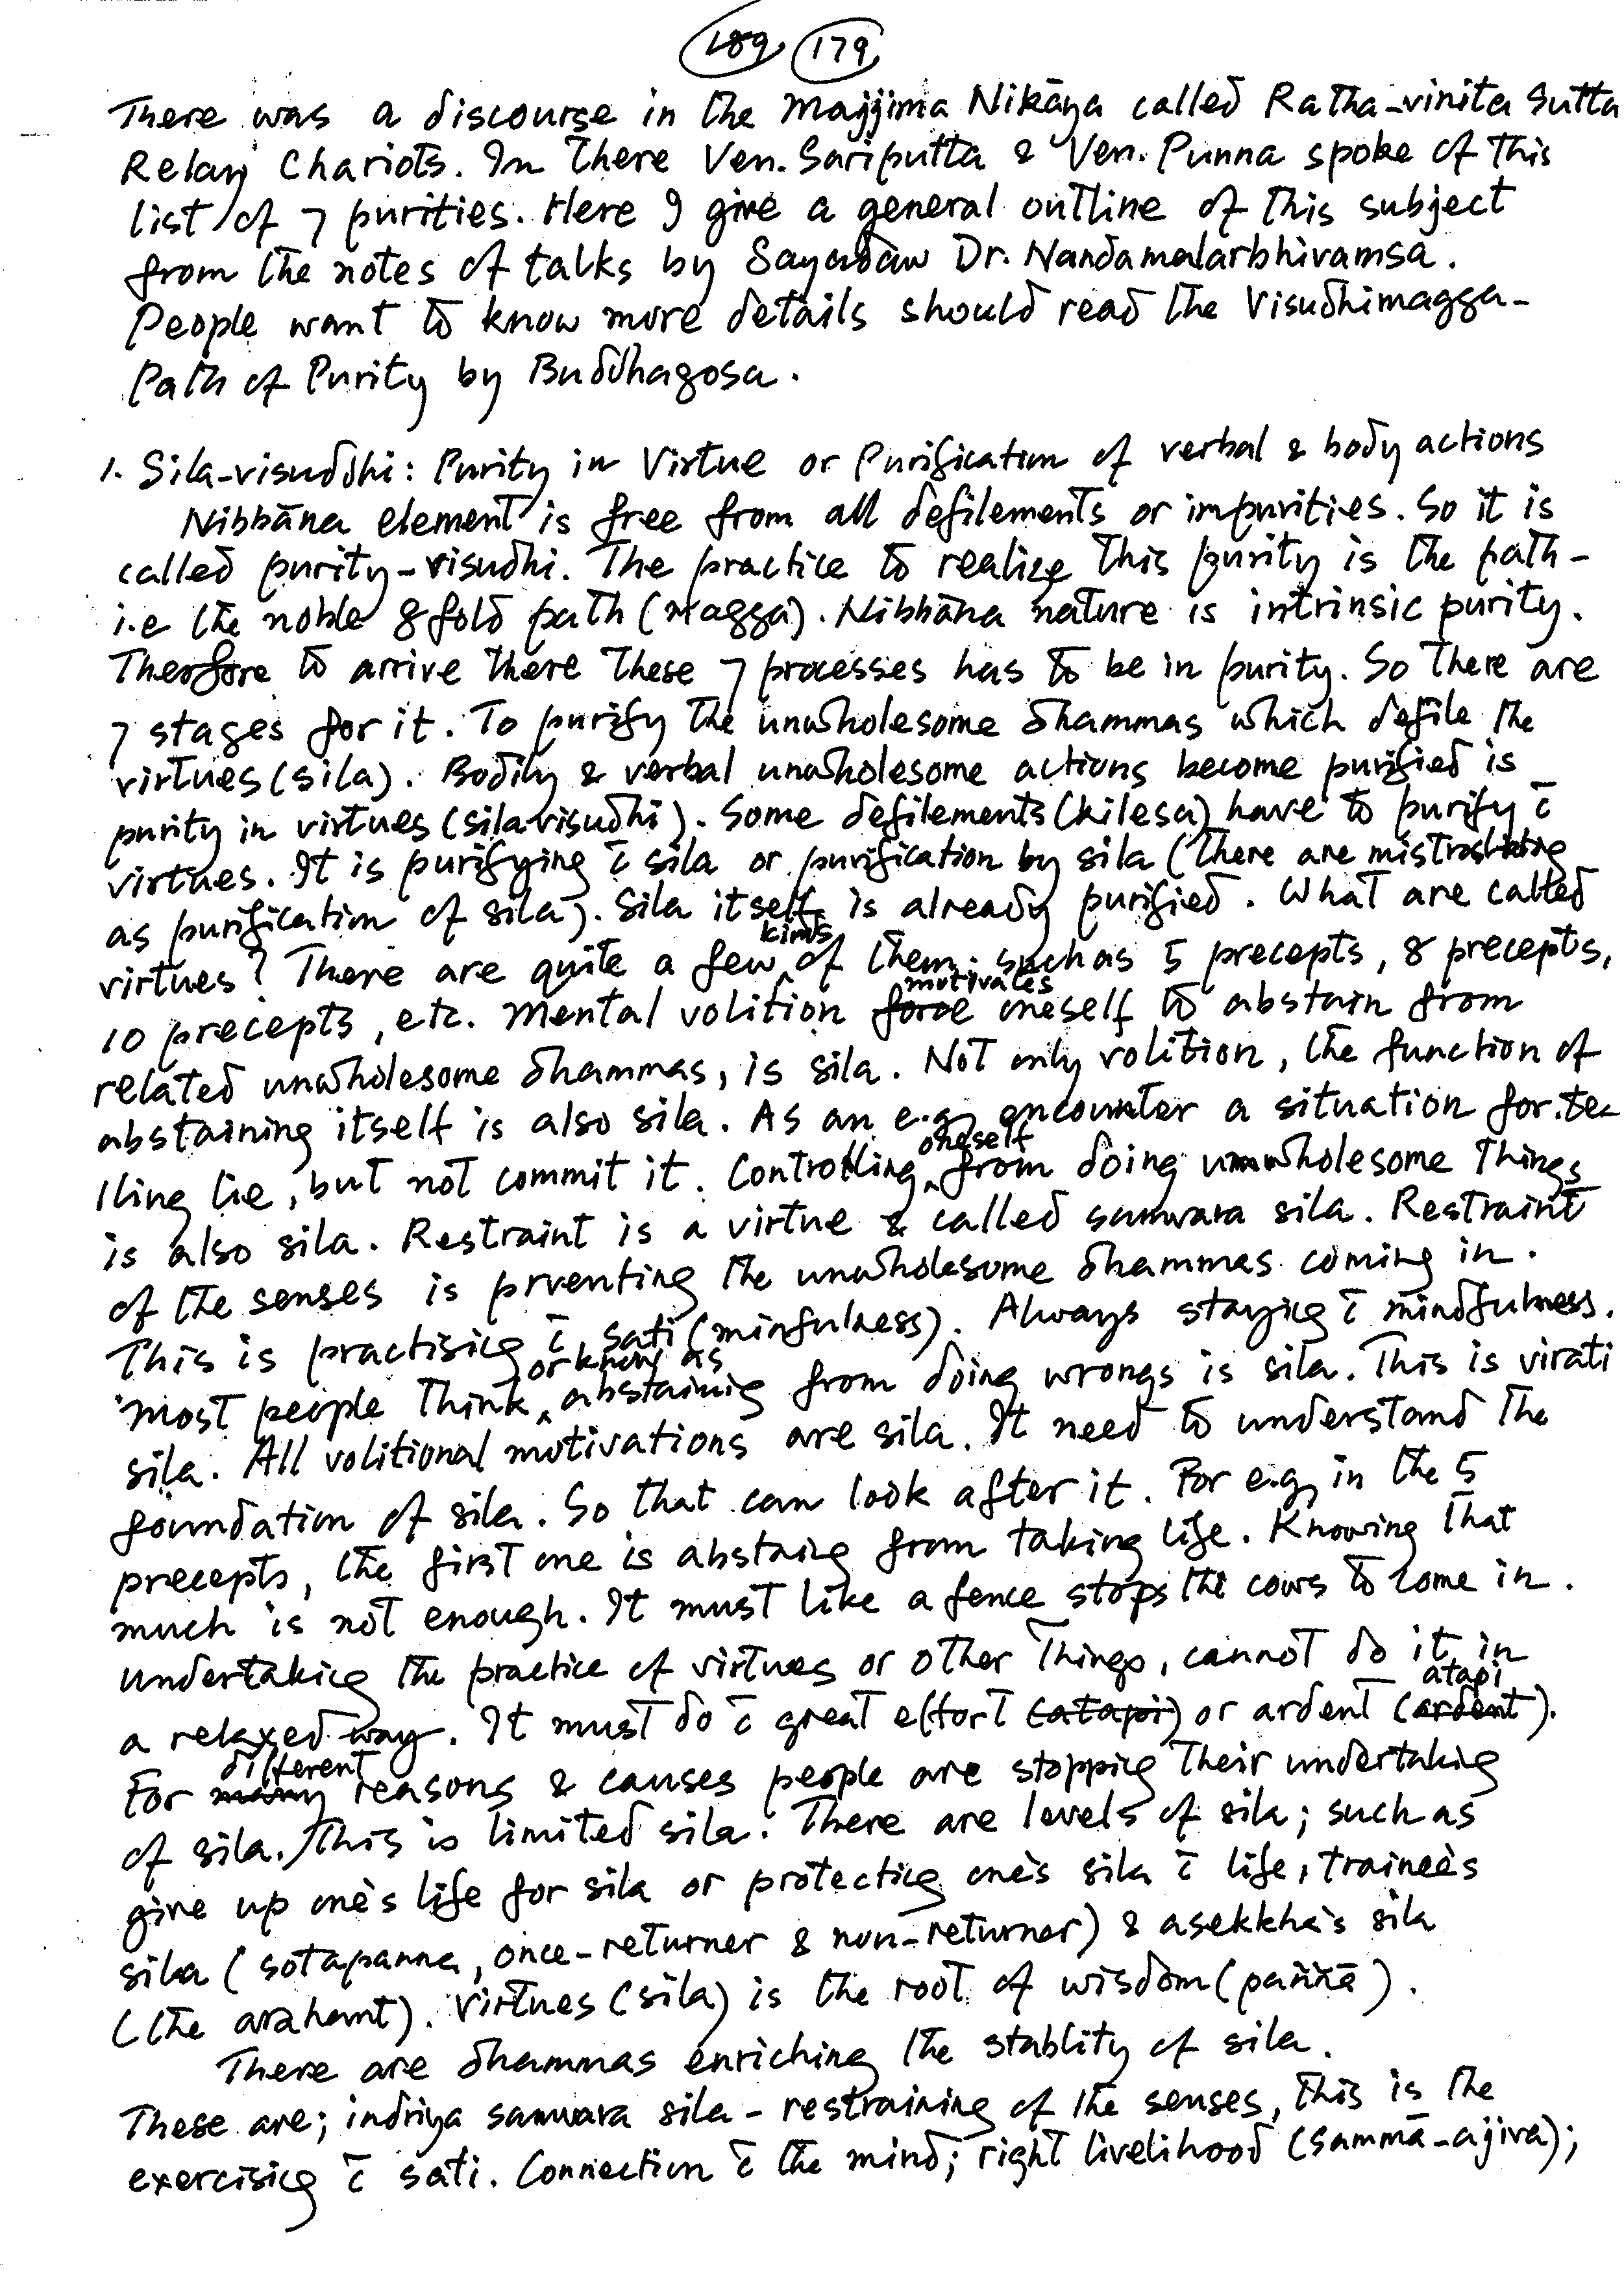 189 179
There was a discourse in the Majjima Nikāya called Ratha-vinita Sutta
Relay Chariots. In there Ven. Sariputta & Ven. Punna spoke of this
list of 7 purities. Here I give a general outline of this subject
from the notes of talks by Sayadaw Dr. Nandamalarbhivamsa.
People want to know more details should read the Visudhimagga-
Path of Purity by Buddhagosa.
1. Sila-visuddhi: Purity in Virtue or Purification of verbal & body actions
Nibbāna element is free from all defilements or impurities. So it is
called purity-visudhi. The practice to realize this purity is the path-
i.e the noble 8 fold path (Magga). Nibbāna nature is intrinsic purity.
Therfore to arrive there these 7 processes has to be in purity. So there are
7 stages for it. To purify the unwholesome dhammas which defile the
virtues (sila). Bodily & verbal unwholesome actions become purified is
purity in virtues (silavisudhi). Some defilements (kilesa) have to purify c̄
virtues. It is purifying c̄ sila or purification by sila (there are mistraslating
as purification of sila). Sila itself is already purified. What are called
virtues? There are quite a few kinds of them. such as 5 precepts, 8 precepts,
10 precepts, etc. Mental volition force motivates oneself to abstain from
related unwholesome dhammas, is sila. Not only volition, the function of
abstaining itself is also sila. As an e.g, encounter a situation for te-
lling lie, but not commit it. Controlling oneself from doing unwholesome things
is also sila. Restraint is a virtue & called samvara sila. Restraint
of the senses is prventing the unwholesome dhammas coming in.
This is practising c̄ sati (minfulness). Always staying c̄ mindfulness.
Most people think or know as abstaining from doing wrongs is sila. This is virati
sila. All volitional motivations are sila. It need to understand the
foundation of sila. So that can look after it. For e.g, in the 5
precepts, the first one is abstaing from taking life. Knowing that
much is not enough. It must like a fence stops the cows to come in.
Undertaking the practice of virtues or other things, cannot do it in
a relaxed way. It must do c̄ great effort (atapi) or ardent (ardent) atapi.
For many different reasons & causes people are stopping their undertaking
of sila. This is limited sila. There are levels of sila; such as
give up one's life for sila or protecting one's sila c̄ life, trainee's
sila (sotapanna, once-returner & non-returner) & asekkha's sila
(the arahant). Virtues (sila) is the root of wisdom (paññā).
There are dhammas enriching the stablity of sila.
These are; indriya samvara sila - restraining of the senses, this is the
exercising c̄ sati. Connection c̄ the mind; right livelihood (sammā-ajiva);